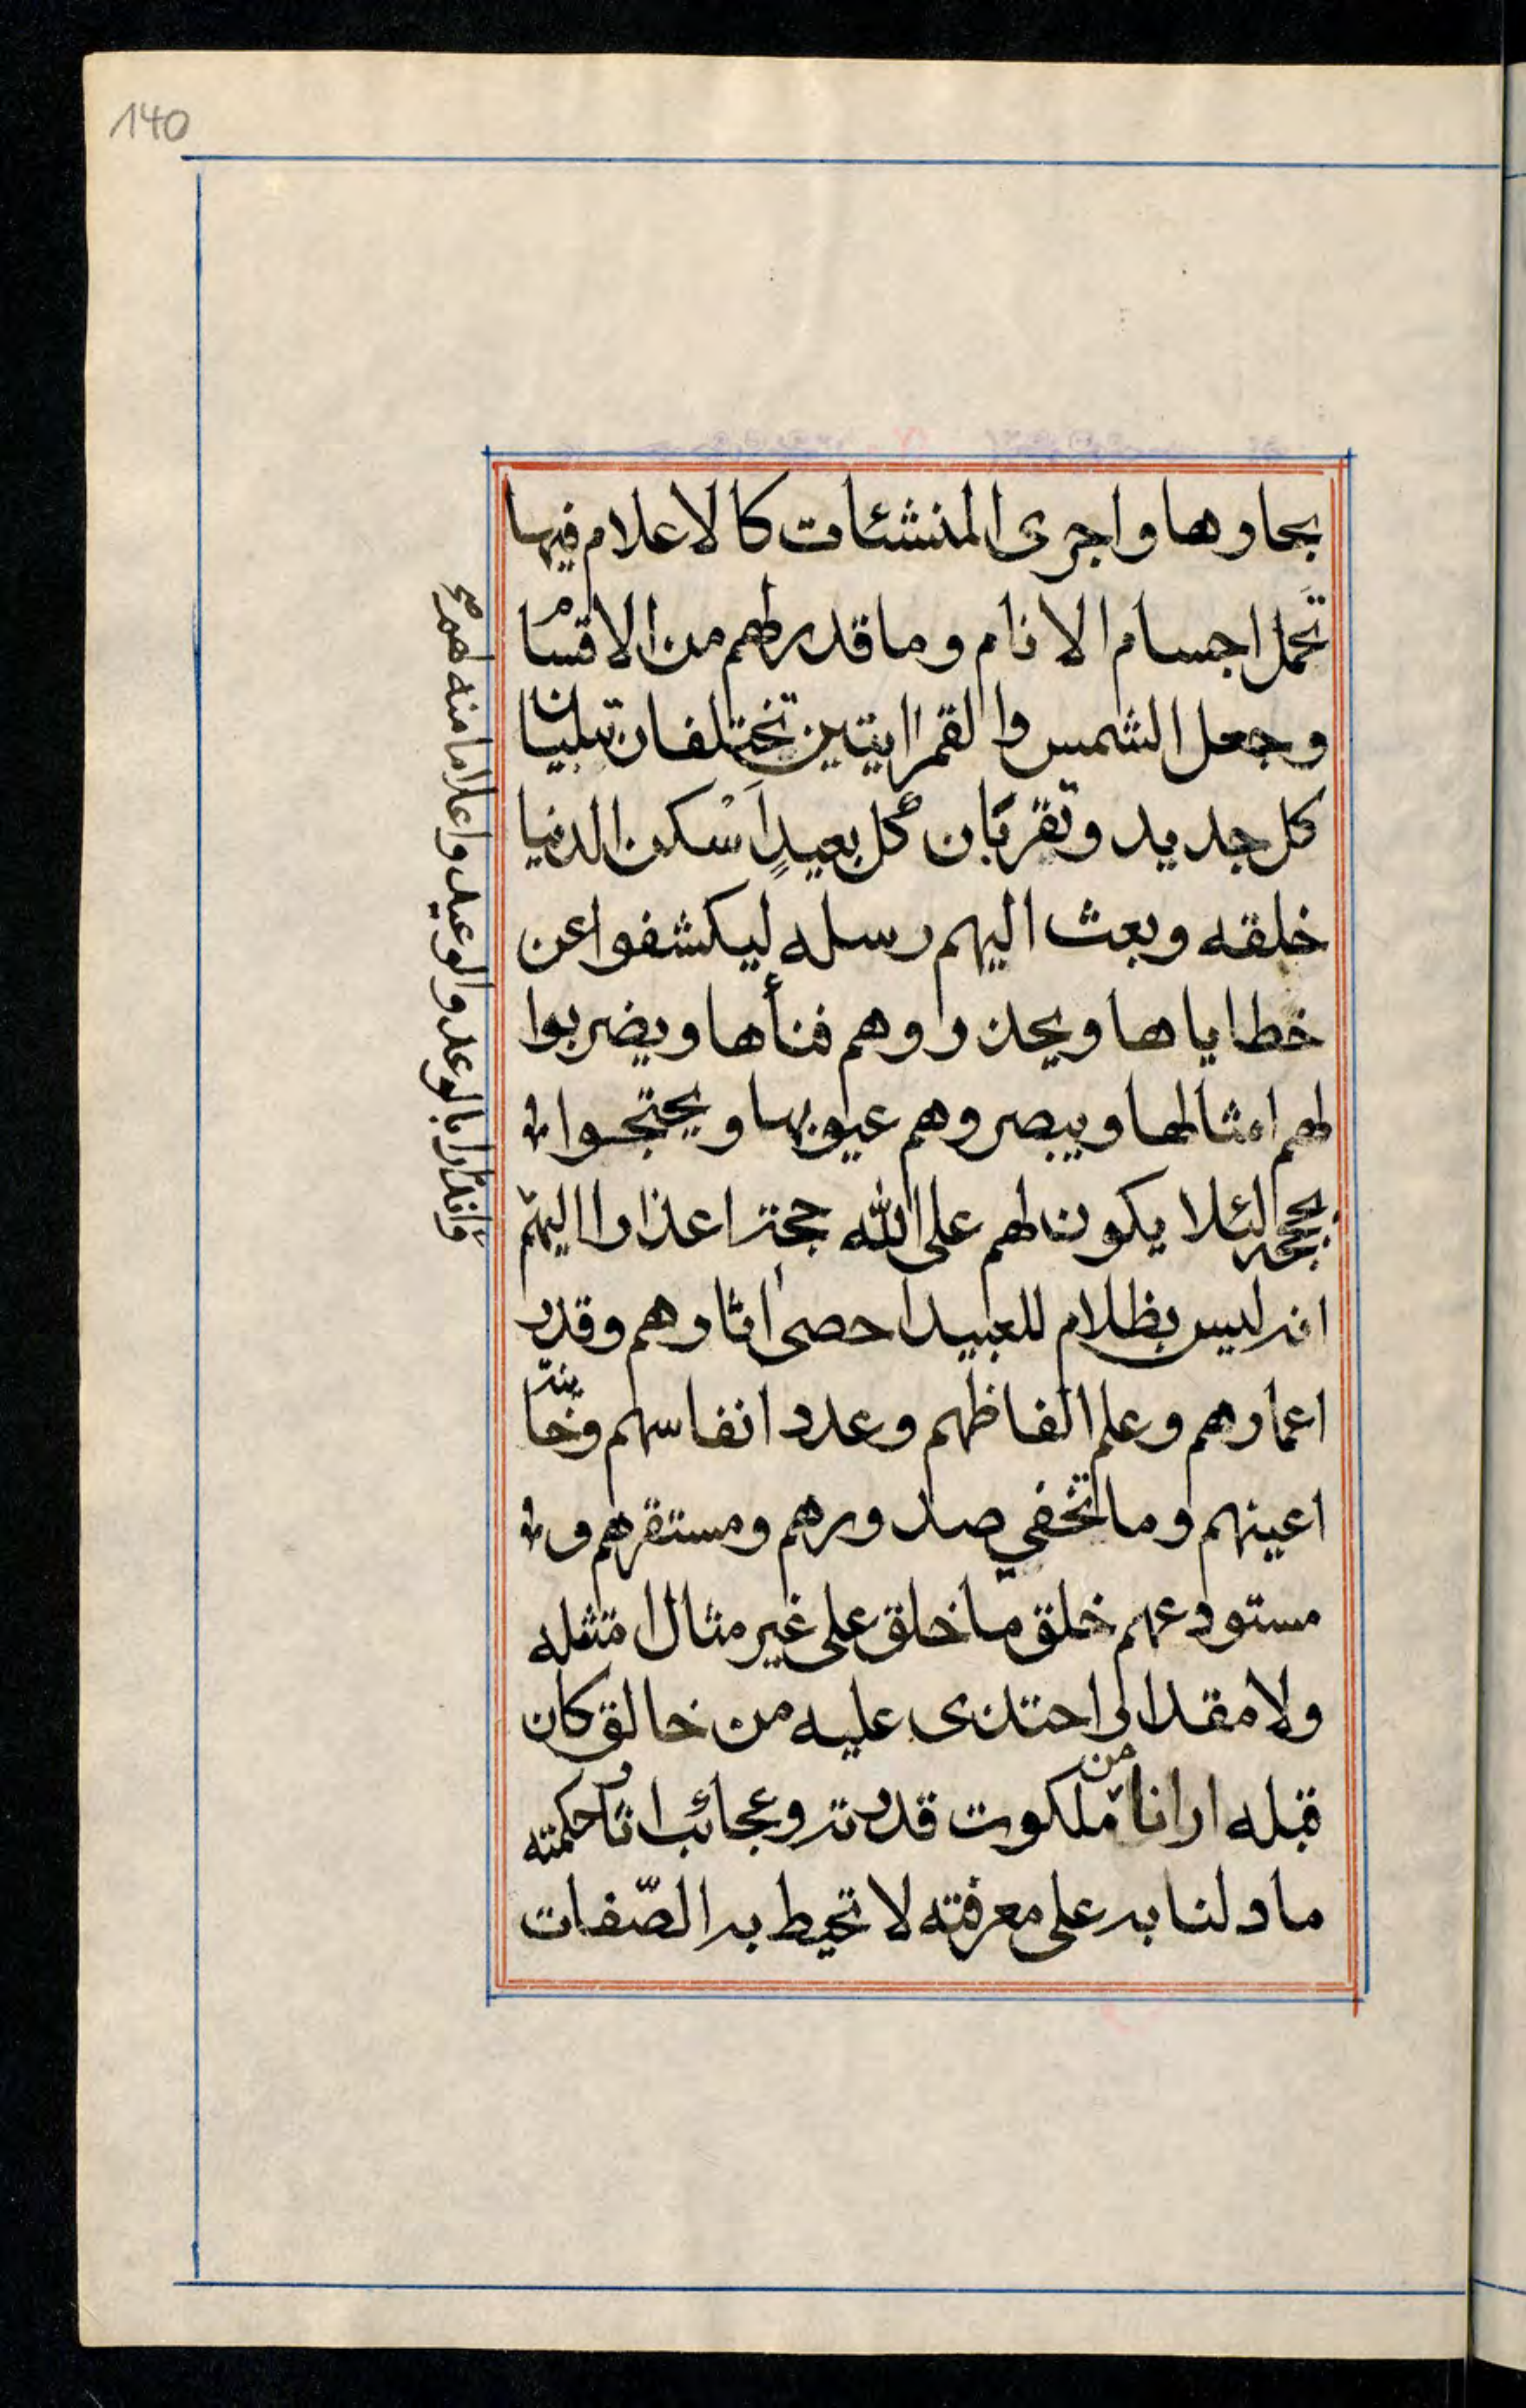 140
بحارها واجرى المنشئات كالاعلام فيها
تحمل اجسام الانام وما قدر لهم من الاقسام
وجعل الشمس والقمر ايتين تختلفان تبليان
كل جديد وتقربان كل بعيد اسكن الدنيا
خلقه وبعث اليهم رسله ليكشفوا عن
خطاياها ويحذروهم فنأها ويضربوا
لهم امثالها ويبصروهم عيوبها ويحتجوا
بحججه لئلا يكون لهم على الله حجة اعذارا اليهم
انه ليس بظلام للعبيد احصى اثارهم وقدر
اعمارهم وعلم الفاظهم وعدد انفاسهم وخاينة
اعينهم وما تخفي صدورهم ومستقرهم و
مستودعهم خلق ما خلق على غير مثال امتثله
ولا مقدار احتذى عليه من خالق كان
قبله ارانا من ملكوت قدرته وعجائب اثار حكمته
ما دلنا به على معرفته لا تحيط به الصّفات
وانذارا بالوعد والوعيد واعلاما منه لهم صح